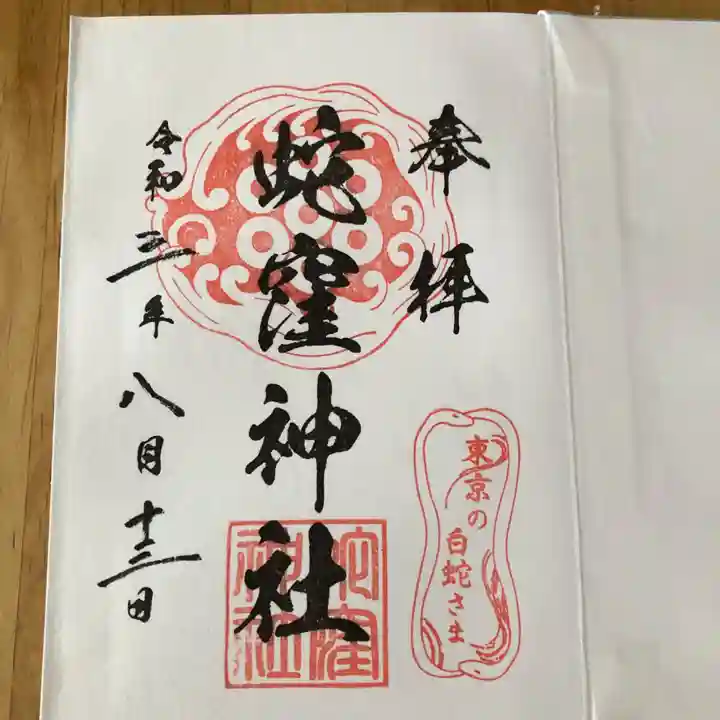 奉拝
蛇窪神社
令和三年八月十三日
東京の
白蛇さま
蛇窪
神社